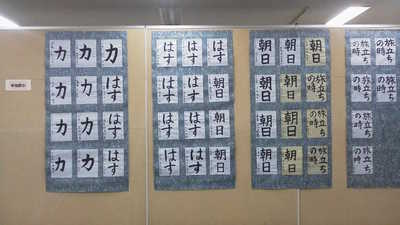 力 力 力
力 力 はす
力 力 はす
力 力 はす
はす はす はす
はす はす 朝日
はす はす 朝日
はす はす 朝日
朝日 朝日 朝日
朝日 朝日 旅立ちの時
朝日 朝日 旅立ちの時
朝日 朝日 旅立ちの時
旅立ちの時 旅立ちの時
旅立ちの時 旅立ちの時
旅立ちの時
旅立ちの時